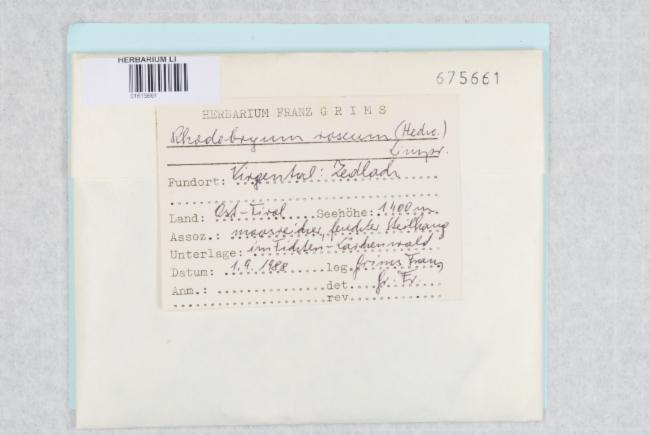 HERBARIUM LI
675661
HERBARIUM FRANZ GRIMS
Rhodobryum roseum (Hedw.)
Limpr.
Fundort: Virgental: Zedlach
Land: Ost-Tirol Seehöhe: 1400 m
Assoz.: moosreicher, feuchter Steilhang
Unterlage: im Fichten-Lärchenwald
Datum: 1.9.1988 leg. Grims Franz
Anm.: det. Gr. Fr.
rev.